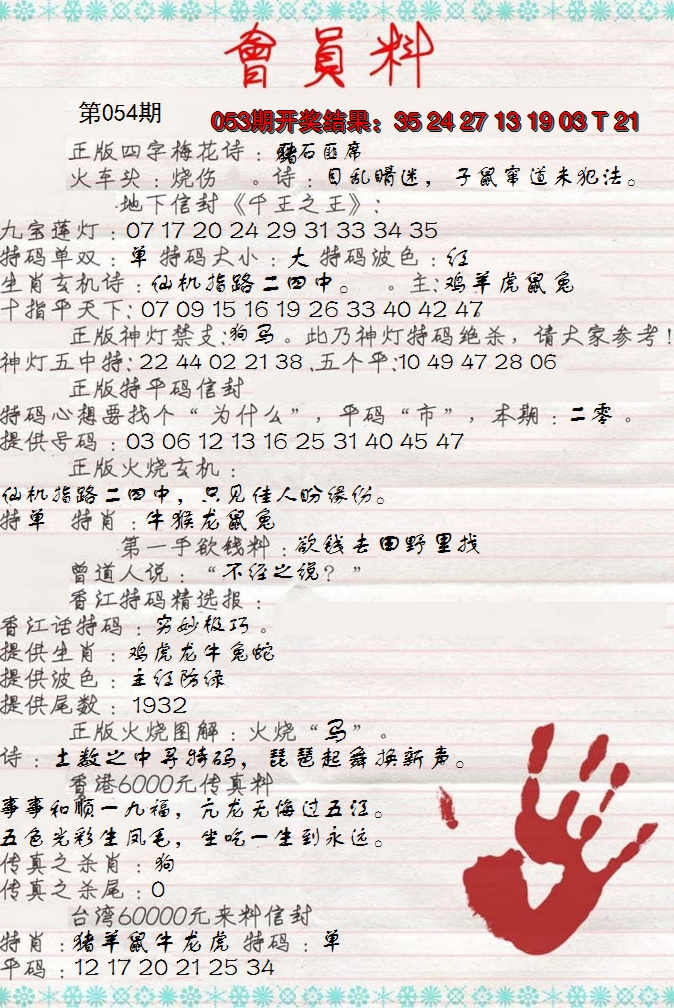 會員料
第054期
053期开奖结果：35 24 27 13 19 03 T 21
正版四字梅花诗：赌石匪席
火车头：烧伤 。诗：目乱睛迷，子鼠窜道未犯法。
地下信封《千王之王》：
九宝莲灯：07 17 20 24 29 31 33 34 35
特码单双：单 特码大小：大 特码波色：红
生肖玄机诗：仙机指路二四中。 。主:鸡羊虎鼠兔
十指平天下:07 09 15 16 19 26 33 40 42 47
正版神灯禁支:狗马。此乃神灯特码绝杀，请大家参考!
神灯五中特:22 44 02 21 38 .五个平:10 49 47 28 06
正版特平码信封
特码心想要找个“为什么”，平码“市”，本期：二零。
提供号码：03 06 12 13 16 25 31 40 45 47
正版火烧玄机：
仙机指路二四中，只见佳人盼缘份。
特单 特肖：牛猴龙鼠兔
第一手欲钱料：欲钱去田野里找
曾道人说：“不经之说？”
香江特码精选报：
香江话特码：穷妙极巧。
提供生肖：鸡虎龙牛兔蛇
提供波色：主红防绿
提供尾数：1932
正版火烧图解：火烧“马”。
诗：土数之中寻特码，琵琶起舞换新声。
香港6000元传真料
事事和顺一九福，亢龙无悔过五江。
五色光彩生凤毛，坐吃一生到永远。
传真之杀肖：狗
传真之杀尾：0
台湾60000元来料信封
特肖：猪羊鼠牛龙虎 特码：单
平码：12 17 20 21 25 34